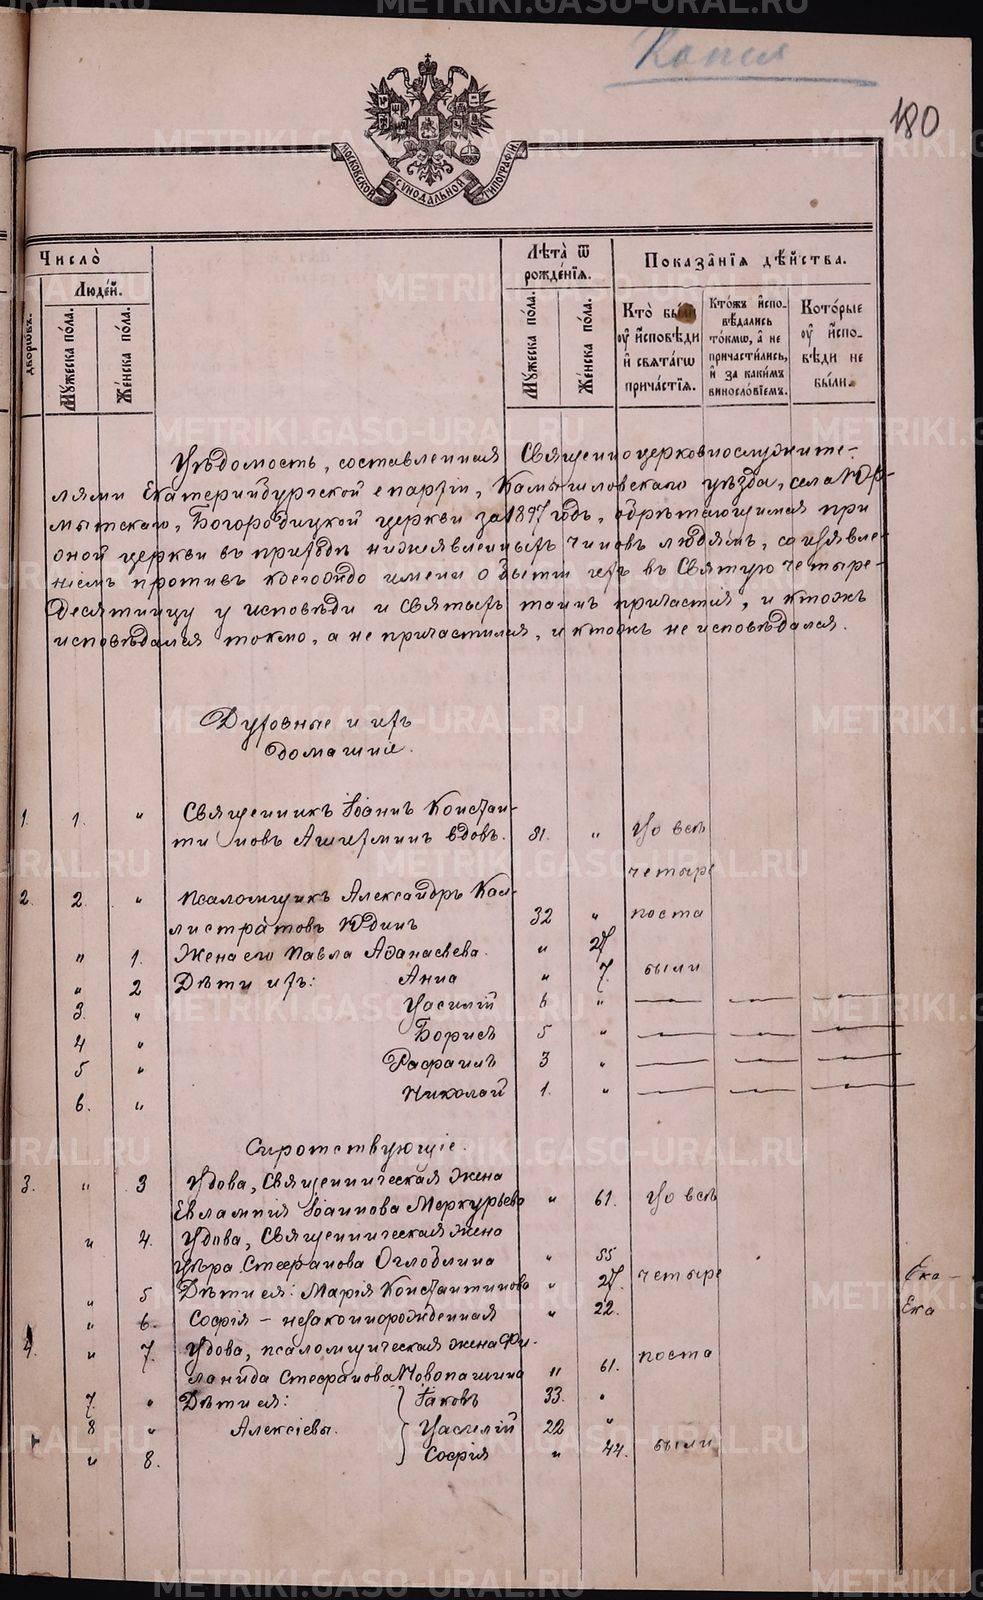 Копія
180
МОСКОВСКОЙ СУНОДАЛЬНОЙ ТИПОГРАФІИ
Число̀
Лѣта̀ ѿ рожде́нїѧ.
Показа̑нїѧ дѣ́йства.
дворѡ́въ.
Люде́й.
Мꙋ́жеска по́ла.
Же́нска по́ла.
Мꙋ́жеска по́ла.
Же́нска по́ла.
Кто̀ бы́ли ᲂу҆ и҆сповѣди и҆ свѧта́гѡ прича́стїѧ.
Кто́жъ и҆спо-вѣдались то́кмѡ, а҆ не причасти́лись, и҆ за каки́мъ винословїемъ.
Кото́рые ᲂу҆ и҆спо-вѣди не бы́ли.
Вѣдомость, составленная Священноцерковнослужите-
лями Екатеринбургской епархіи, Камышловскаго уѣзда, села Юр-
мытскаго, Богородицкой церкви за 1897 годъ, обрѣтающимся при
оной церкви въ приходѣ нижеявленныхъ чиновъ людямъ, со изъявле-
ніемъ противъ коегождо имени о бытіи ихъ въ Святую четыре-
десятницу у исповѣди и святыхъ таинъ причастія, и ктожъ
исповѣдался токмо, а не причастился, и ктожъ не исповѣдался.
Духовные и ихъ
домашніе.
1. 1. " Священникъ Іоаннъ Констан-
тиновъ Ашихминъ вдовъ. 81. " Во всѣ
четыре
2. 2. " Псаломщикъ Александръ Кал-
листратовъ Юдинъ 32 " поста
" 1. Жена его Павла Аѳанасьева. " 27
" 2 Дѣти ихъ: Анна " 7. были
3. " Василій 6 "
4 " Борисъ 5 "
5 " Рафаилъ 3 "
6. " Николай 1. "
Сиротствующіе.
3. " 3 Вдова, Священническая жена
Евлампія Іоаннова Меркурьева " 61. Во всѣ
" 4. Вдова, Священническая жена
Вѣра Стефанова Оглоблина " 55
" 5 Дѣти ея: Марія Константинова " 27 четыре
" 6. Софія – незаконнорожденная " 22.
4. " 7. Вдова, псаломщическая жена Фи-
ланида Стефанова Новопашина " 61. поста
7. " Дѣти ея: Іаковъ 33. "
8 " Алексіевы. Василій 22 "
" 8. Софія " 44. были
Ека-
Ека
METRIKI.GASO-URAL.RU